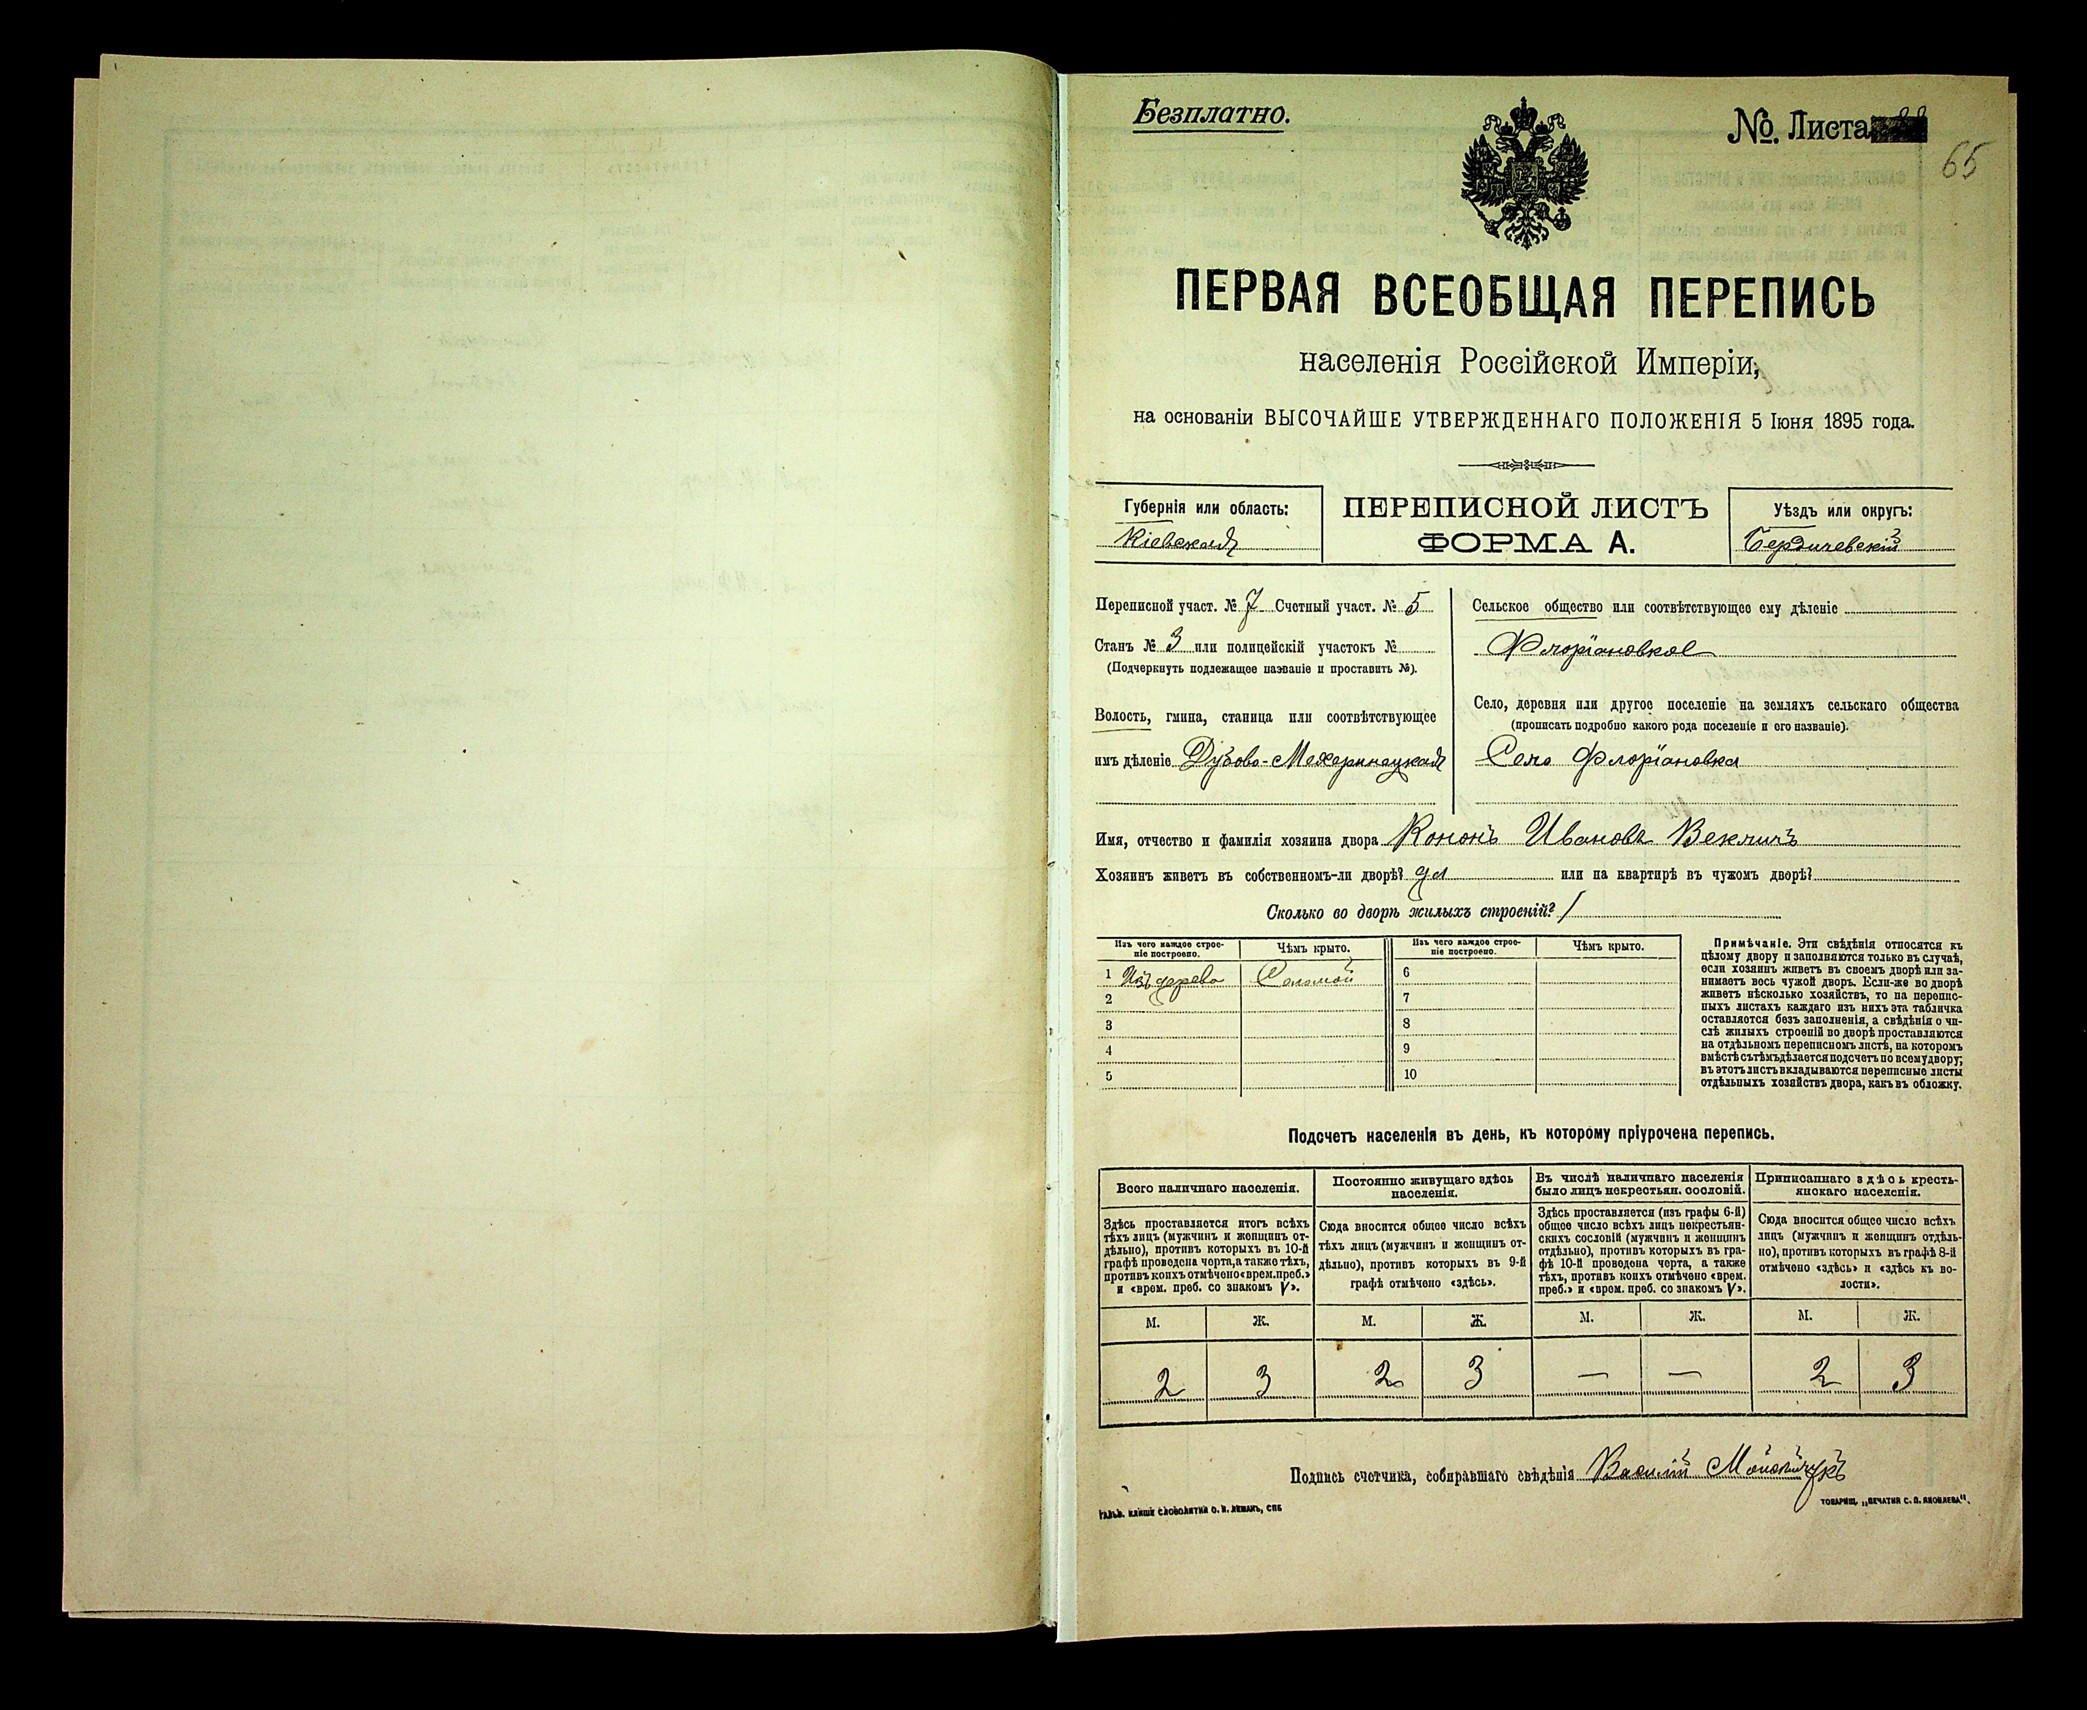 Безплатно.
№. Листа
65
ПЕРВАЯ ВСЕОБЩАЯ ПЕРЕПИСЬ
населенія Россійской Имперіи,
на основаніи ВЫСОЧАЙШЕ УТВЕРЖДЕННАГО ПОЛОЖЕНІЯ 5 Іюня 1895 года.
Губернія или область:
Кіевская
ПЕРЕПИСНОЙ ЛИСТЪ
ФОРМА А.
Уѣздъ или округъ:
Бердичевскій
Переписной участ. № 7 Счетный участ. № 5
Станъ № 3 или полицейскій участокъ №
(Подчеркнуть подлежащее названіе и проставить №).
Волость, гмина, станица или соотвѣтствующее
имъ дѣленіе Дубово-Махаринецкая
Сельское общество или соотвѣтствующее ему дѣленіе
Флоріановкое
Село, деревня или другое поселеніе на земляхъ сельскаго общества
(прописать подробно какого рода поселеніе и его названіе).
Село Флоріановка
Имя, отчество и фамилія хозяина двора Кононъ Ивановъ Векличъ
Хозяинъ живетъ въ собственномъ-ли дворѣ? да или на квартирѣ въ чужомъ дворѣ?
Сколько во дворѣ жилыхъ строеній? 1
Изъ чего каждое строе-
ніе построено.
Чѣмъ крыто.
Изъ чего каждое строе-
ніе построено.
Чѣмъ крыто.
1 Изъ дерева Соломой 6
2 7
3 8
4 9
5 10
Примѣчаніе. Эти свѣдѣнія относятся къ
цѣлому двору и заполняются только въ случаѣ,
если хозяинъ живетъ въ своемъ дворѣ или за-
нимаетъ весь чужой дворъ. Если-же во дворѣ
живетъ нѣсколько хозяйствъ, то на перепис-
ныхъ листахъ каждаго изъ нихъ эта табличка
оставляется безъ заполненія, а свѣдѣнія о чи-
слѣ жилыхъ строеній во дворѣ проставляются
на отдѣльномъ переписномъ листѣ, на которомъ
вмѣстѣ съ тѣмъ дѣлается подсчетъ по всему двору;
въ этотъ листъ вкладываются переписные листы
отдѣльныхъ хозяйствъ двора, какъ въ обложку.
Подсчетъ населенія въ день, къ которому пріурочена перепись.
Всего наличнаго населенія.
Постоянно живущаго здѣсь
населенія.
Въ числѣ наличнаго населенія
было лицъ некрестьян. сословій.
Приписаннаго здѣсь кресть-
янскаго населенія.
Здѣсь проставляется итогъ всѣхъ
тѣхъ лицъ (мужчинъ и женщинъ от-
дѣльно), противъ которыхъ въ 10-й
графѣ проведена черта, а также тѣхъ,
противъ коихъ отмѣчено «врем. преб.»
и «врем. преб. со знакомъ V».
Сюда вносится общее число всѣхъ
тѣхъ лицъ (мужчинъ и женщинъ от-
дѣльно), противъ которыхъ въ 9-й
графѣ отмѣчено «здѣсь».
Здѣсь проставляется (изъ графы 6-й)
общее число всѣхъ лицъ некрестьян-
скихъ сословій (мужчинъ и женщинъ
отдѣльно), противъ которыхъ въ гра-
фѣ 10-й проведена черта, а также
тѣхъ, противъ коихъ отмѣчено «врем.
преб.» и «врем. преб. со знакомъ V».
Сюда вносится общее число всѣхъ
лицъ (мужчинъ и женщинъ отдѣль-
но), противъ которыхъ въ графѣ 8-й
отмѣчено «здѣсь» и «здѣсь къ во-
лости».
М. Ж. М. Ж. М. Ж. М. Ж.
2 3 2 3 — — 2 3
Подпись счетчика, собиравшаго свѣдѣнія Василій
ГАЛЬВ. КЛИШЕ СЛОВОЛИТНИ О. И. ЛЕМАНЪ, СПБ
ТОВАРИЩ. „ПЕЧАТНЯ С. П. ЯКОВЛЕВА".